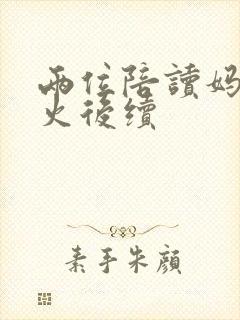 兩位陪讀媽
火後續
素手朱顏